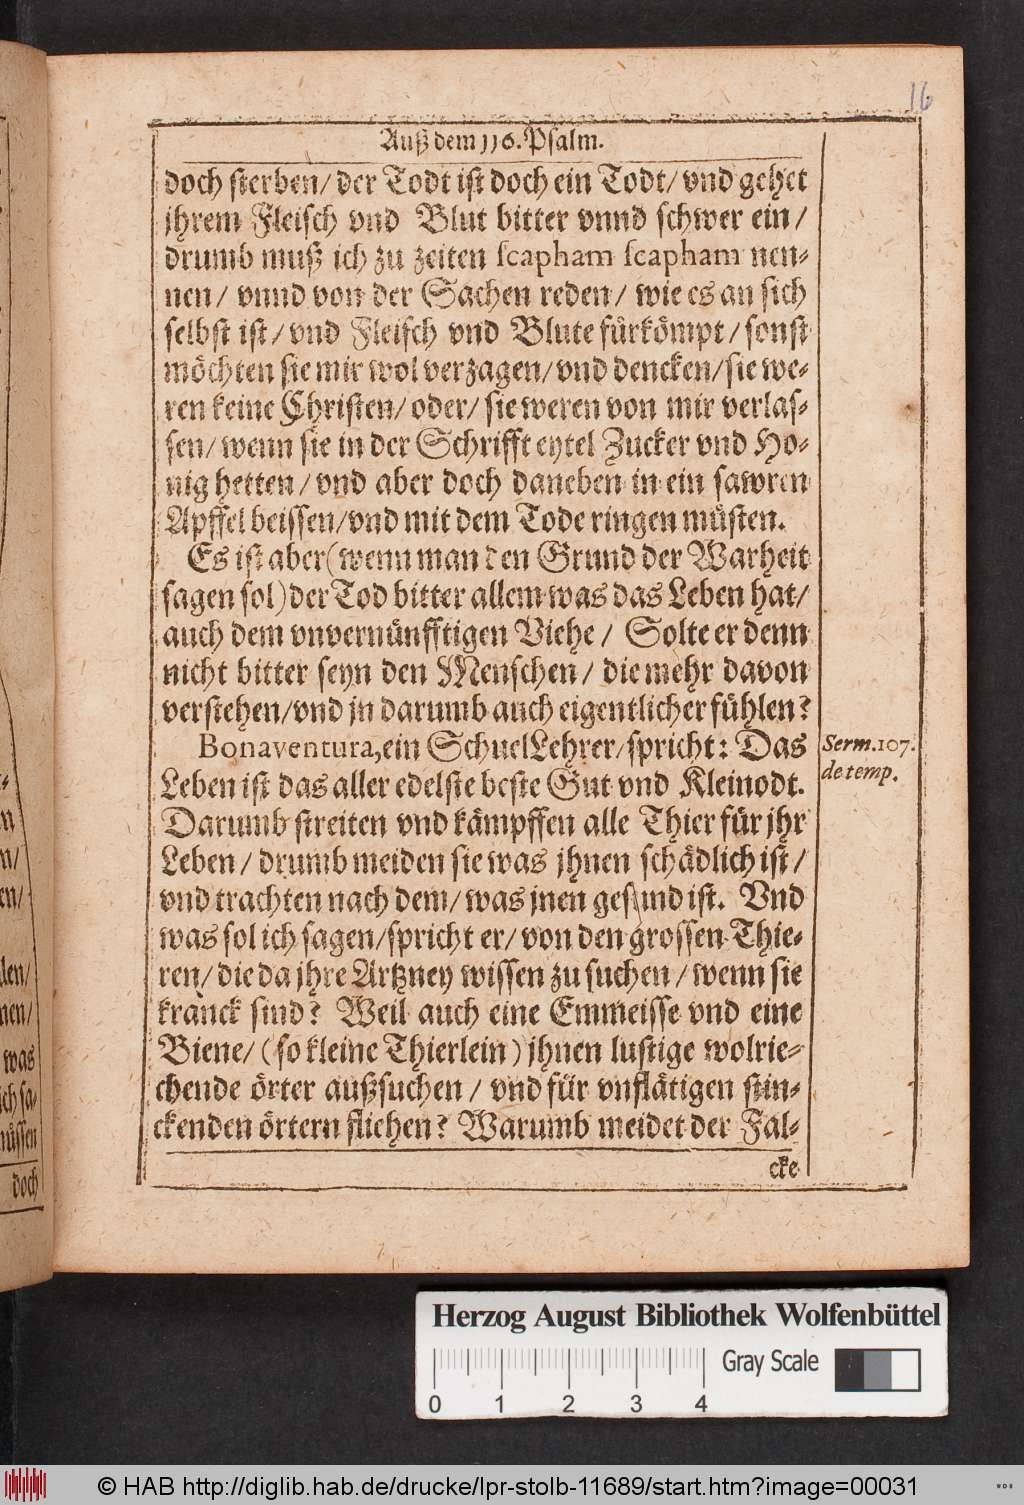 16
Auß dem 116. Psalm.
doch sterben/ der Todt ist doch ein Todt/ vnd gehet
jhrem Fleisch vnd Blut bitter vnnd schwer ein/
drumb muß ich zu zeiten scapham scapham nen-
nen/ vnnd von der Sachen reden/ wie es an sich
selbst ist/ vnd Fleisch vnd Blute fürkömpt/ sonst
möchten sie mir wol verzagen/ vnd dencken/ sie we-
ren keine Christen/ oder/ sie weren von mir verlas-
sen/ wenn sie in der Schrifft eytel Zucker vnd Ho-
nig hetten/ vnd aber doch daneben in ein sawren
Apffel beissen/ vnd mit dem Tode ringen müsten.
Es ist aber (wenn man den Grund der Warheit
sagen sol) der Tod bitter allem was das Leben hat/
auch dem vnvernünfftigen Viehe/ Solte er denn
nicht bitter seyn den Menschen/ die mehr davon
verstehen/ vnd jn darumb auch eigentlicher fühlen?
Bonaventura, ein SchuelLehrer/ spricht: Das
Serm. 107.
de temp.
Leben ist das aller edelste beste Gut vnd Kleinodt.
Darumb streiten vnd kämpffen alle Thier für jhr
Leben/ drumb meiden sie was jhnen schädlich ist/
vnd trachten nach dem/ was jnen gesund ist. Vnd
was sol ich sagen/ spricht er/ von den grossen Thie-
ren/ die da jhre Artzney wissen zu suchen/ wenn sie
kranck sind? Weil auch eine Emmeisse vnd eine
Biene/ (so kleine Thierlein) jhnen lustige wolrie-
chende örter außsuchen/ vnd für vnflätigen stin-
ckenden örtern fliehen? Warumb meidet der Fal-
cke
len/
nen/
was
ich sa-
müssen
doch
Herzog August Bibliothek Wolfenbüttel
Gray Scale
0 1 2 3 4
© HAB http://diglib.hab.de/drucke/lpr-stolb-11689/start.htm?image=00031